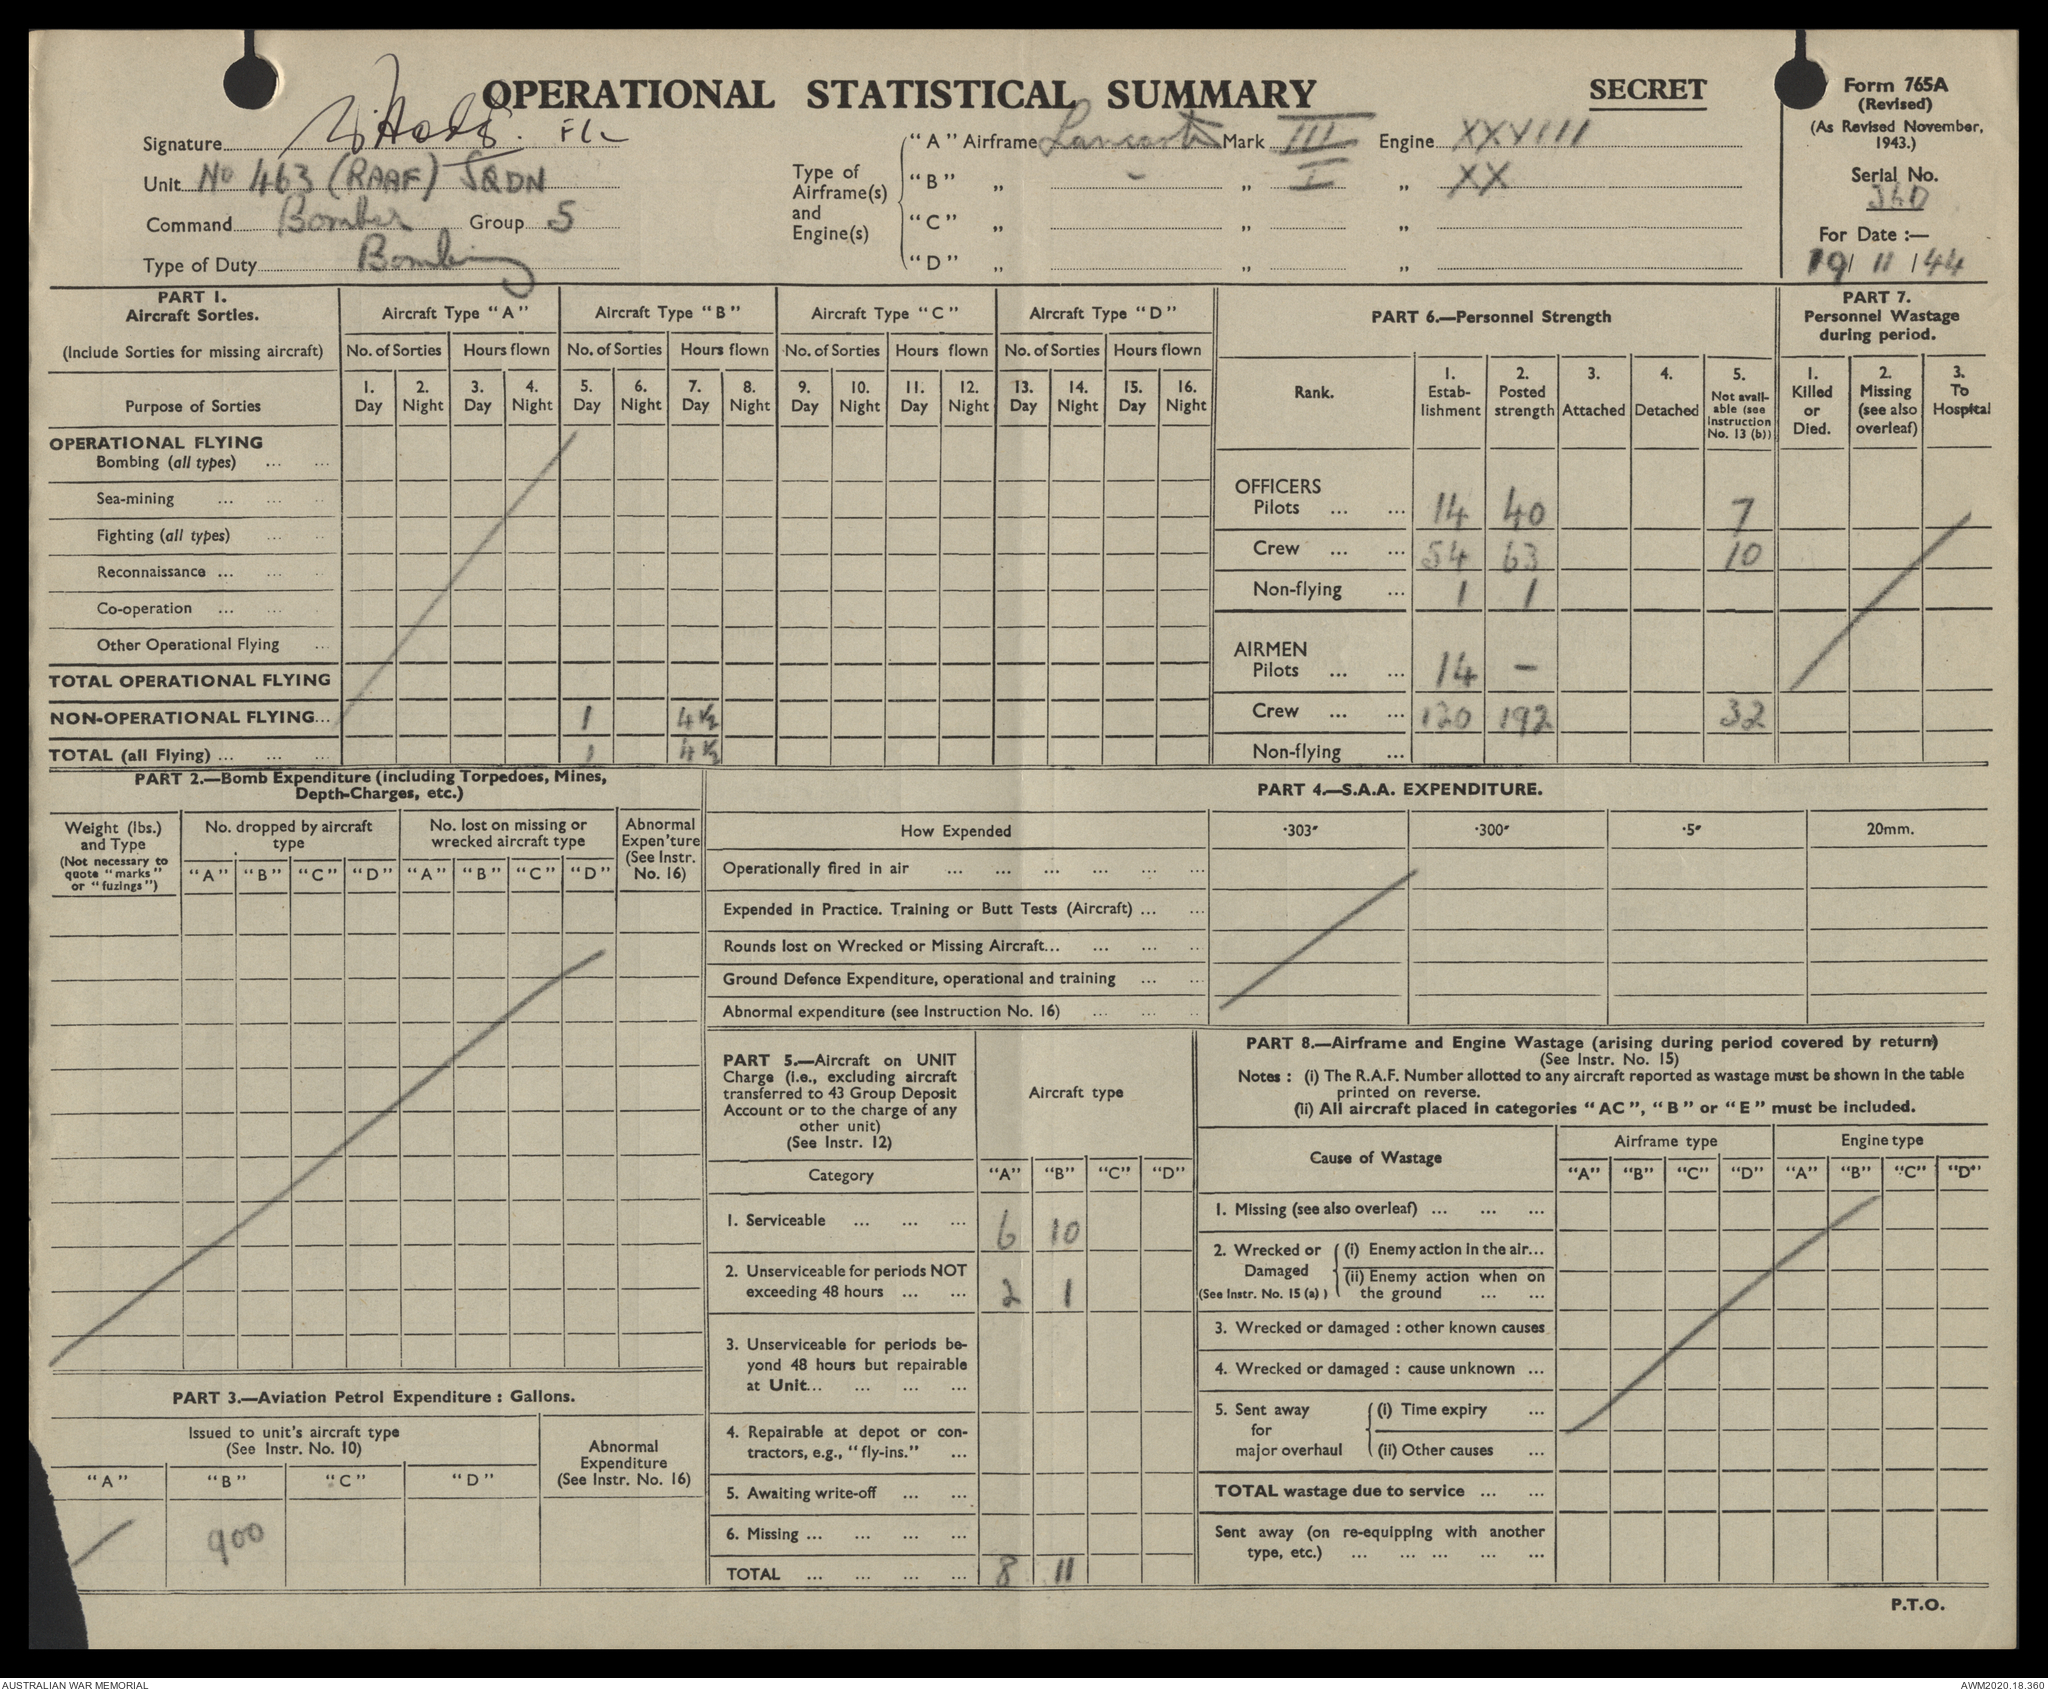 OPERATIONAL STATISTICAL SUMMARY
SECRET
Form 765A
(Revised)
(As Revised November, 1943.)
Serial No.
For Date :—
19/ 11 /44
Signature
Unit No 463 (RAAF) SQDN
Command Bomber Group 5
Type of Duty Bombing
Type of Airframe(s) and Engine(s)
"A" Airframe Lancaster Mark III Engine XXVIII
"B" „ „ I „ XX
"C" „ „ „
"D" „ „ „
PART 1.
Aircraft Sorties.
(Include Sorties for missing aircraft)
Purpose of Sorties
Aircraft Type "A" Aircraft Type "B" Aircraft Type "C" Aircraft Type "D"
No. of Sorties Hours flown No. of Sorties Hours flown No. of Sorties Hours flown No. of Sorties Hours flown
1. Day 2. Night 3. Day 4. Night 5. Day 6. Night 7. Day 8. Night 9. Day 10. Night 11. Day 12. Night 13. Day 14. Night 15. Day 16. Night
OPERATIONAL FLYING
Bombing (all types) ... ...
Sea-mining ... ... ..
Fighting (all types) ... ..
Reconnaissance ... ... ..
Co-operation ... ... ..
Other Operational Flying ...
TOTAL OPERATIONAL FLYING
NON-OPERATIONAL FLYING... 1 4½
TOTAL (all Flying) ... ... ... 1 4½
PART 6.—Personnel Strength
Rank.
1. Estab-lishment 2. Posted strength 3. Attached 4. Detached 5. Not avail-able (see Instruction No. 13 (b))
OFFICERS
Pilots ... ... 14 40 7
Crew ... ... 54 63 10
Non-flying ... 1 1
AIRMEN
Pilots ... ... 14 –
Crew ... ... 120 192 32
Non-flying ...
PART 7.
Personnel Wastage
during period.
1. Killed or Died. 2. Missing (see also overleaf) 3. To Hospital
PART 2.—Bomb Expenditure (including Torpedoes, Mines,
Depth-Charges, etc.)
Weight (lbs.) and Type
(Not necessary to quote "marks" or "fuzings")
No. dropped by aircraft type
No. lost on missing or wrecked aircraft type
Abnormal Expen'ture (See Instr. No. 16)
"A" "B" "C" "D" "A" "B" "C" "D"
PART 4.—S.A.A. EXPENDITURE.
How Expended ·303″ ·300″ ·5″ 20mm.
Operationally fired in air ... ... ... ... ... ...
Expended in Practice. Training or Butt Tests (Aircraft) ... ...
Rounds lost on Wrecked or Missing Aircraft... ... ... ...
Ground Defence Expenditure, operational and training ... ...
Abnormal expenditure (see Instruction No. 16) ... ... ..
PART 3.—Aviation Petrol Expenditure : Gallons.
Issued to unit's aircraft type
(See Instr. No. 10)
Abnormal Expenditure (See Instr. No. 16)
"A" "B" "C" "D"
900
PART 5.—Aircraft on UNIT
Charge (i.e., excluding aircraft
transferred to 43 Group Deposit
Account or to the charge of any
other unit)
(See Instr. 12)
Aircraft type
Category "A" "B" "C" "D"
1. Serviceable ... ... ... 6 10
2. Unserviceable for periods NOT
exceeding 48 hours ... ... 2 1
3. Unserviceable for periods be-
yond 48 hours but repairable
at Unit... ... ... ...
4. Repairable at depot or con-
tractors, e.g., "fly-ins." ...
5. Awaiting write-off ... ...
6. Missing ... ... ... ...
TOTAL ... ... ... ... 8 11
PART 8.—Airframe and Engine Wastage (arising during period covered by return)
(See Instr. No. 15)
Notes : (i) The R.A.F. Number allotted to any aircraft reported as wastage must be shown in the table
printed on reverse.
(ii) All aircraft placed in categories "AC", "B" or "E" must be included.
Cause of Wastage Airframe type Engine type
"A" "B" "C" "D" "A" "B" "C" "D"
1. Missing (see also overleaf) ... ... ...
2. Wrecked or Damaged (See Instr. No. 15 (a) )
(i) Enemy action in the air...
(ii) Enemy action when on the ground ... ...
3. Wrecked or damaged : other known causes
4. Wrecked or damaged : cause unknown ...
5. Sent away for major overhaul
(i) Time expiry ...
(ii) Other causes ...
TOTAL wastage due to service ... ...
Sent away (on re-equipping with another
type, etc.) ... ... ... ... ...
P.T.O.
AUSTRALIAN WAR MEMORIAL
AWM2020.18.360